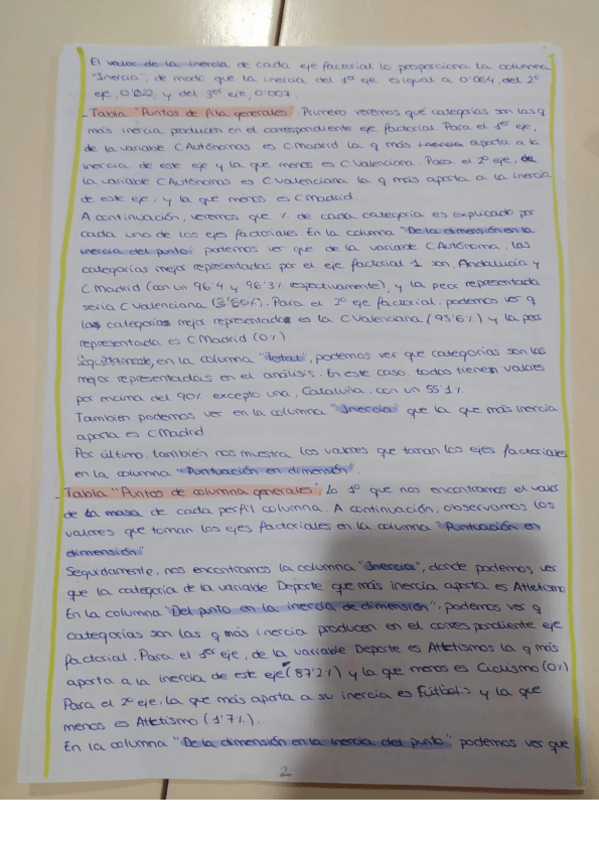 El valor de la inercia de cada eje factorial lo proporciona la columna
"Inercia", de modo que la inercia del 1er eje es igual a 0'064, del 2º
eje, 0'022, y del 3er eje, 0'007.
- Tabla "Puntos de fila generales". Primero veremos qué categorías son las q
más inercia producen en el correspondiente eje factorial. Para el 1er eje,
de la variable CAutónomas es CMadrid la q más inercia aporta a la
inercia de este eje y la que menos es CValenciana. Para el 2º eje, de
la variable CAutónomas es CValenciana la q más aporta a la inercia
de este eje, y la que menos es CMadrid.
A continuación, veremos que % de cada categoría es explicado por
cada uno de los ejes factoriales. En la columna "De la dimensión en la
inercia del punto" podemos ver que de la variable CAutónoma, las
categorías mejor representadas por el eje factorial 1 son, Andalucía y
CMadrid (con un 96'4 y 96'3% respectivamente), y la peor representada
sería CValenciana (3'80%). Para el 2º eje factorial, podemos ver q
las categorías mejor representadas es la CValenciana (95'6%) y la peor
representada es CMadrid (0%).
Seguidamente, en la columna "Total", podemos ver que categorías son las
mejor representadas en el análisis. En este caso, todas tienen valores
por encima del 90% excepto una, Cataluña, con un 55'1%.
También podemos ver en la columna "Inercia" que la que más inercia
aporta es CMadrid.
Por último, también nos muestra los valores que toman los ejes factoriales
en la columna "Puntuación en dimensión".
- Tabla "Puntos de columna generales". Lo 1º que nos encontramos el valor
de la masa de cada perfil columna. A continuación, observamos los
valores que toman los ejes factoriales en la columna "Puntuación en
dimensión"
Seguidamente, nos encontramos la columna "Inercia", donde podemos ver
que la categoría de la variable Deporte que más inercia aporta es Atletismo
En la columna "Del punto en la inercia de dimensión", podemos ver q
categorías son las q más inercia producen en el correspondiente eje
factorial. Para el 1er eje, de la variable Deporte es Atletismos la q más
aporta a la inercia de este eje (87'2%) y la que menos es Ciclismo (0%)
Para el 2º eje, la que más aporta a su inercia es Fútbol y la que
menos es Atletismo (1'7%).
En la columna "De la dimensión en la inercia del punto" podemos ver que
2